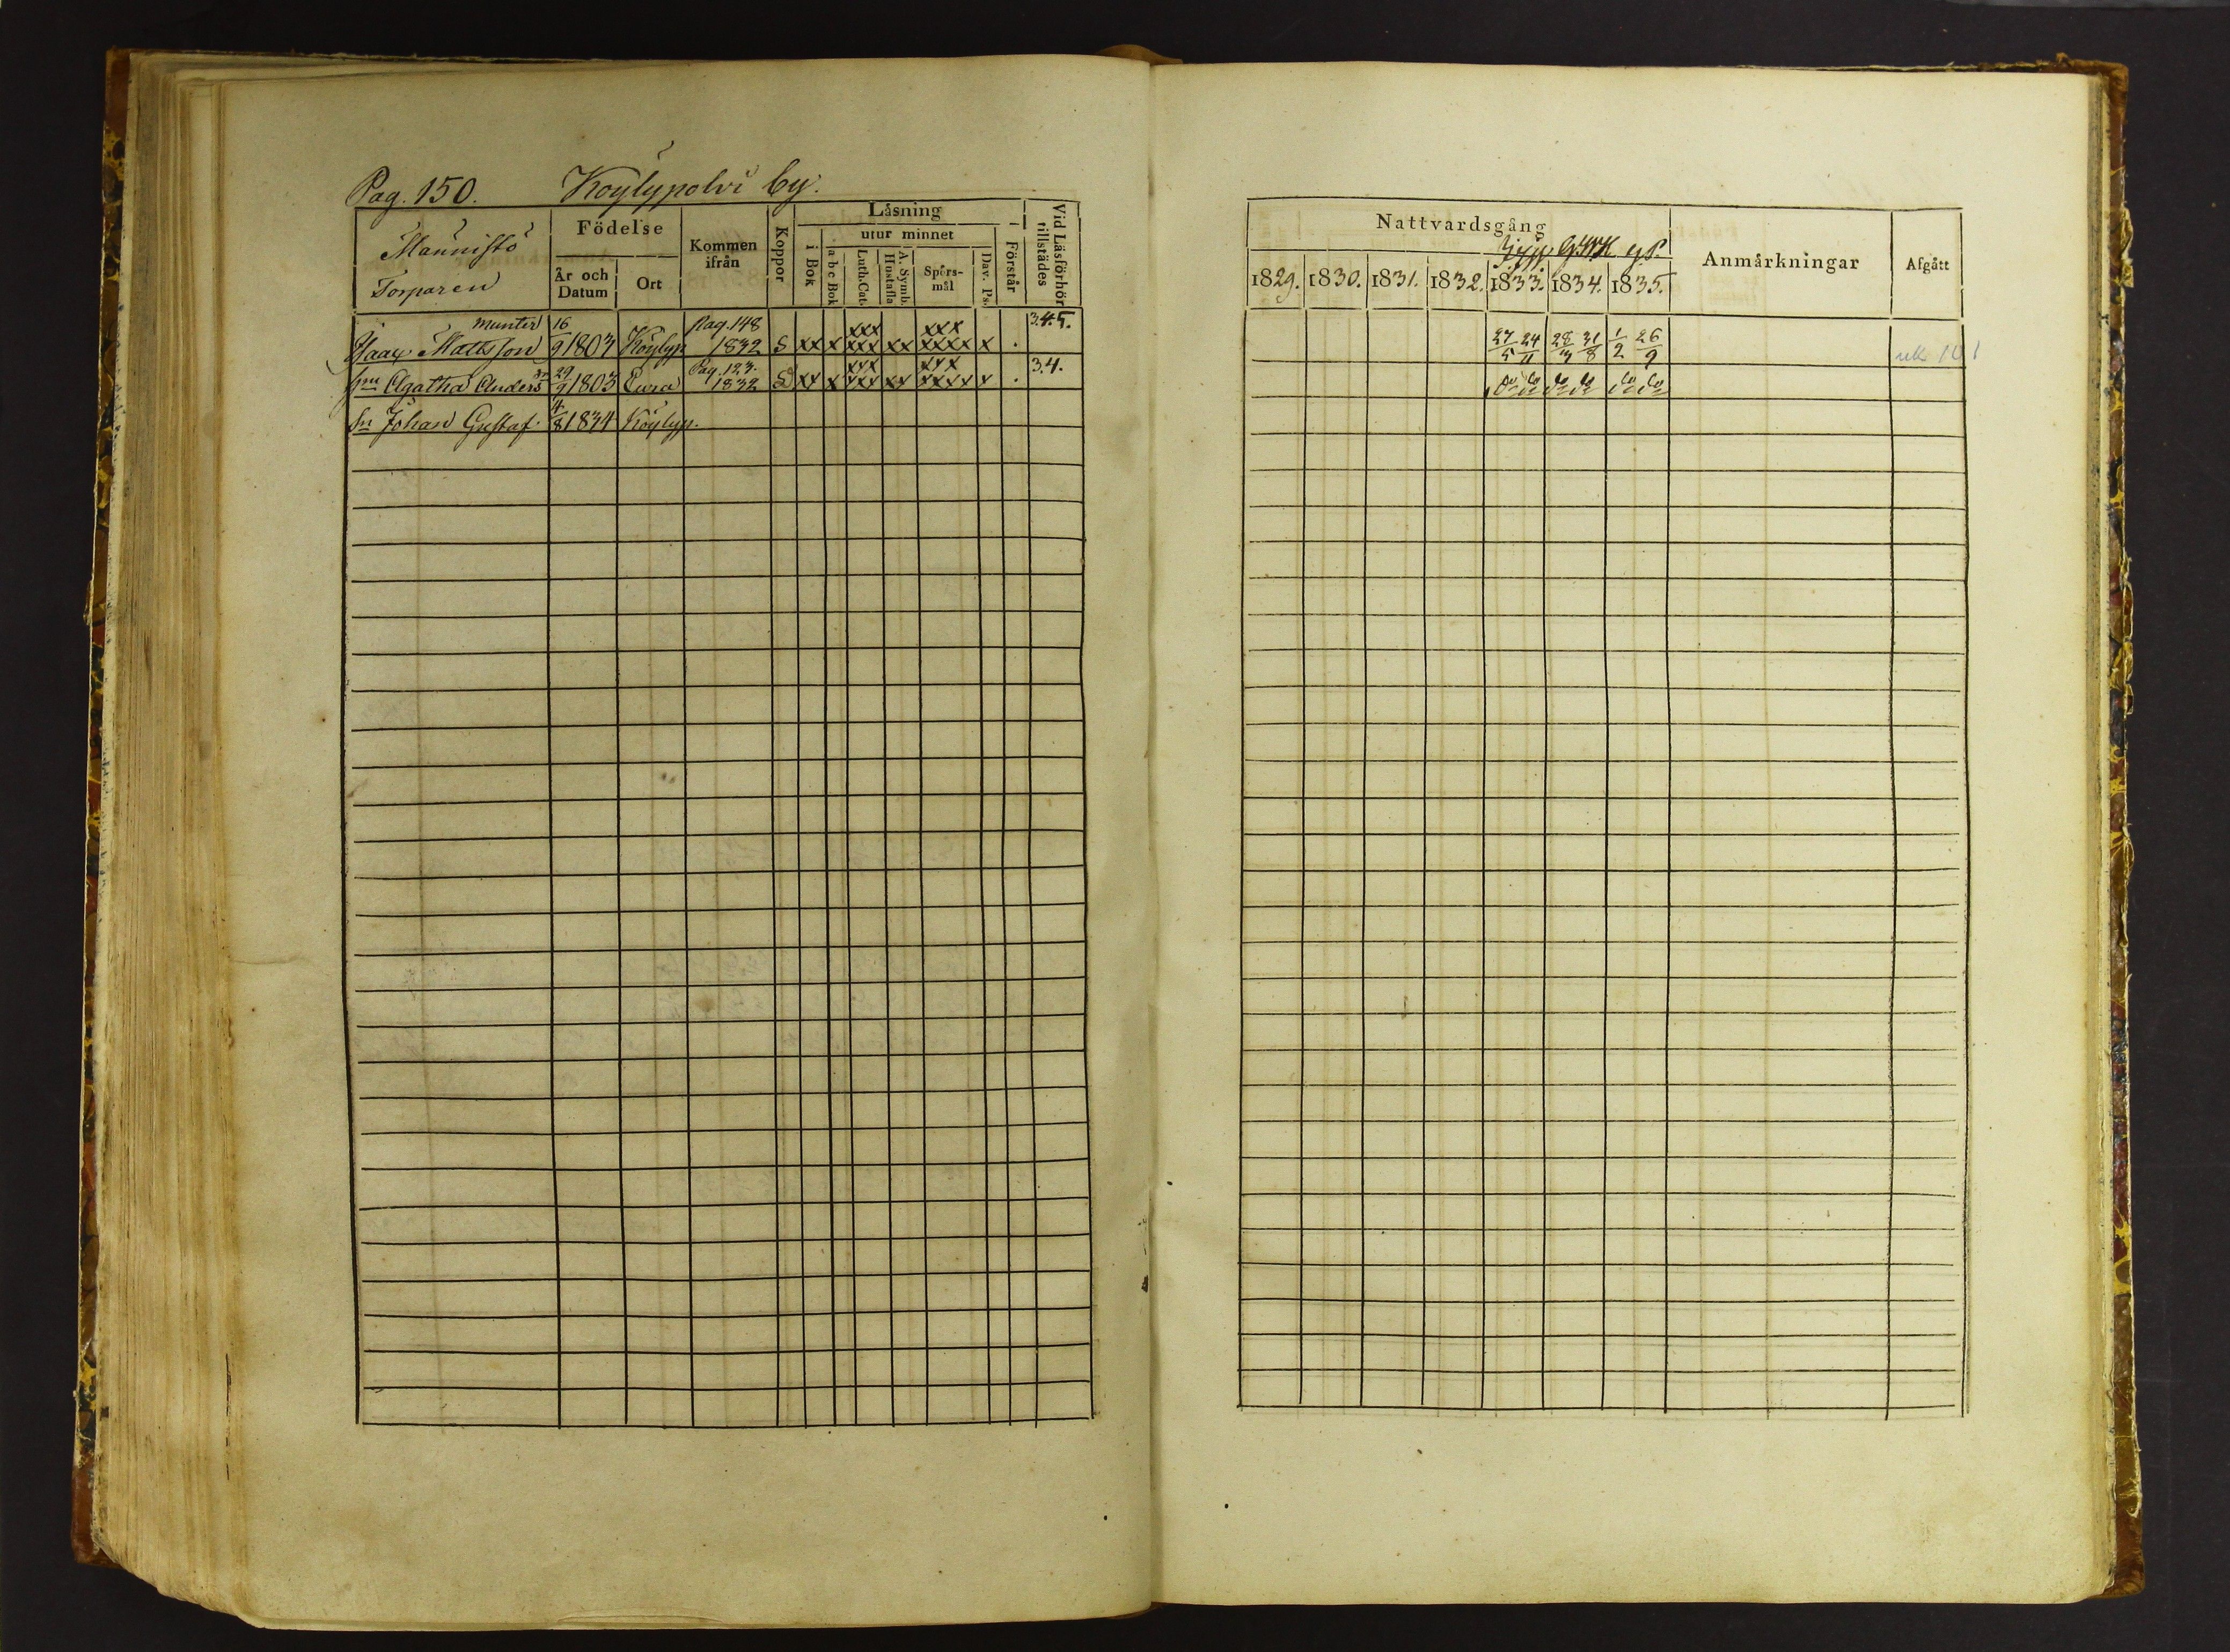 Pag. 150. Köylypolvi by.
Männistö
Torparen
Födelse
År och Datum
Ort
Kommen ifrån
Koppor
Läsning
i Bok
utur minnet
a b c Bok
Luth. Cat.
A. Symb. Hustafla
Spörsmål
Dav. Ps.
Förstår
Vid Läsförhör tillstädes
Munter
Isaac Mattsson 16/9 1803 Köylyp Pag. 148 1832 S xx x xxx xxx xx xxx xxxx x . 3.4.5.
hu Agatha Anders dr 29/9 1803 Eura Pag. 123. 1832 S xx x xxx xxx xx xxx xxxx x . 3.4.
Sn Johan Gustaf. 4/8 1834 Köylyp.
Nattvardsgång
1829. 1830. 1831. 1832. 1833. 1834. 1835.
Anmärkningar
Afgått
27/5 24/11 28/3 31/8 1/2 26/9
do do do do do do
uk 101